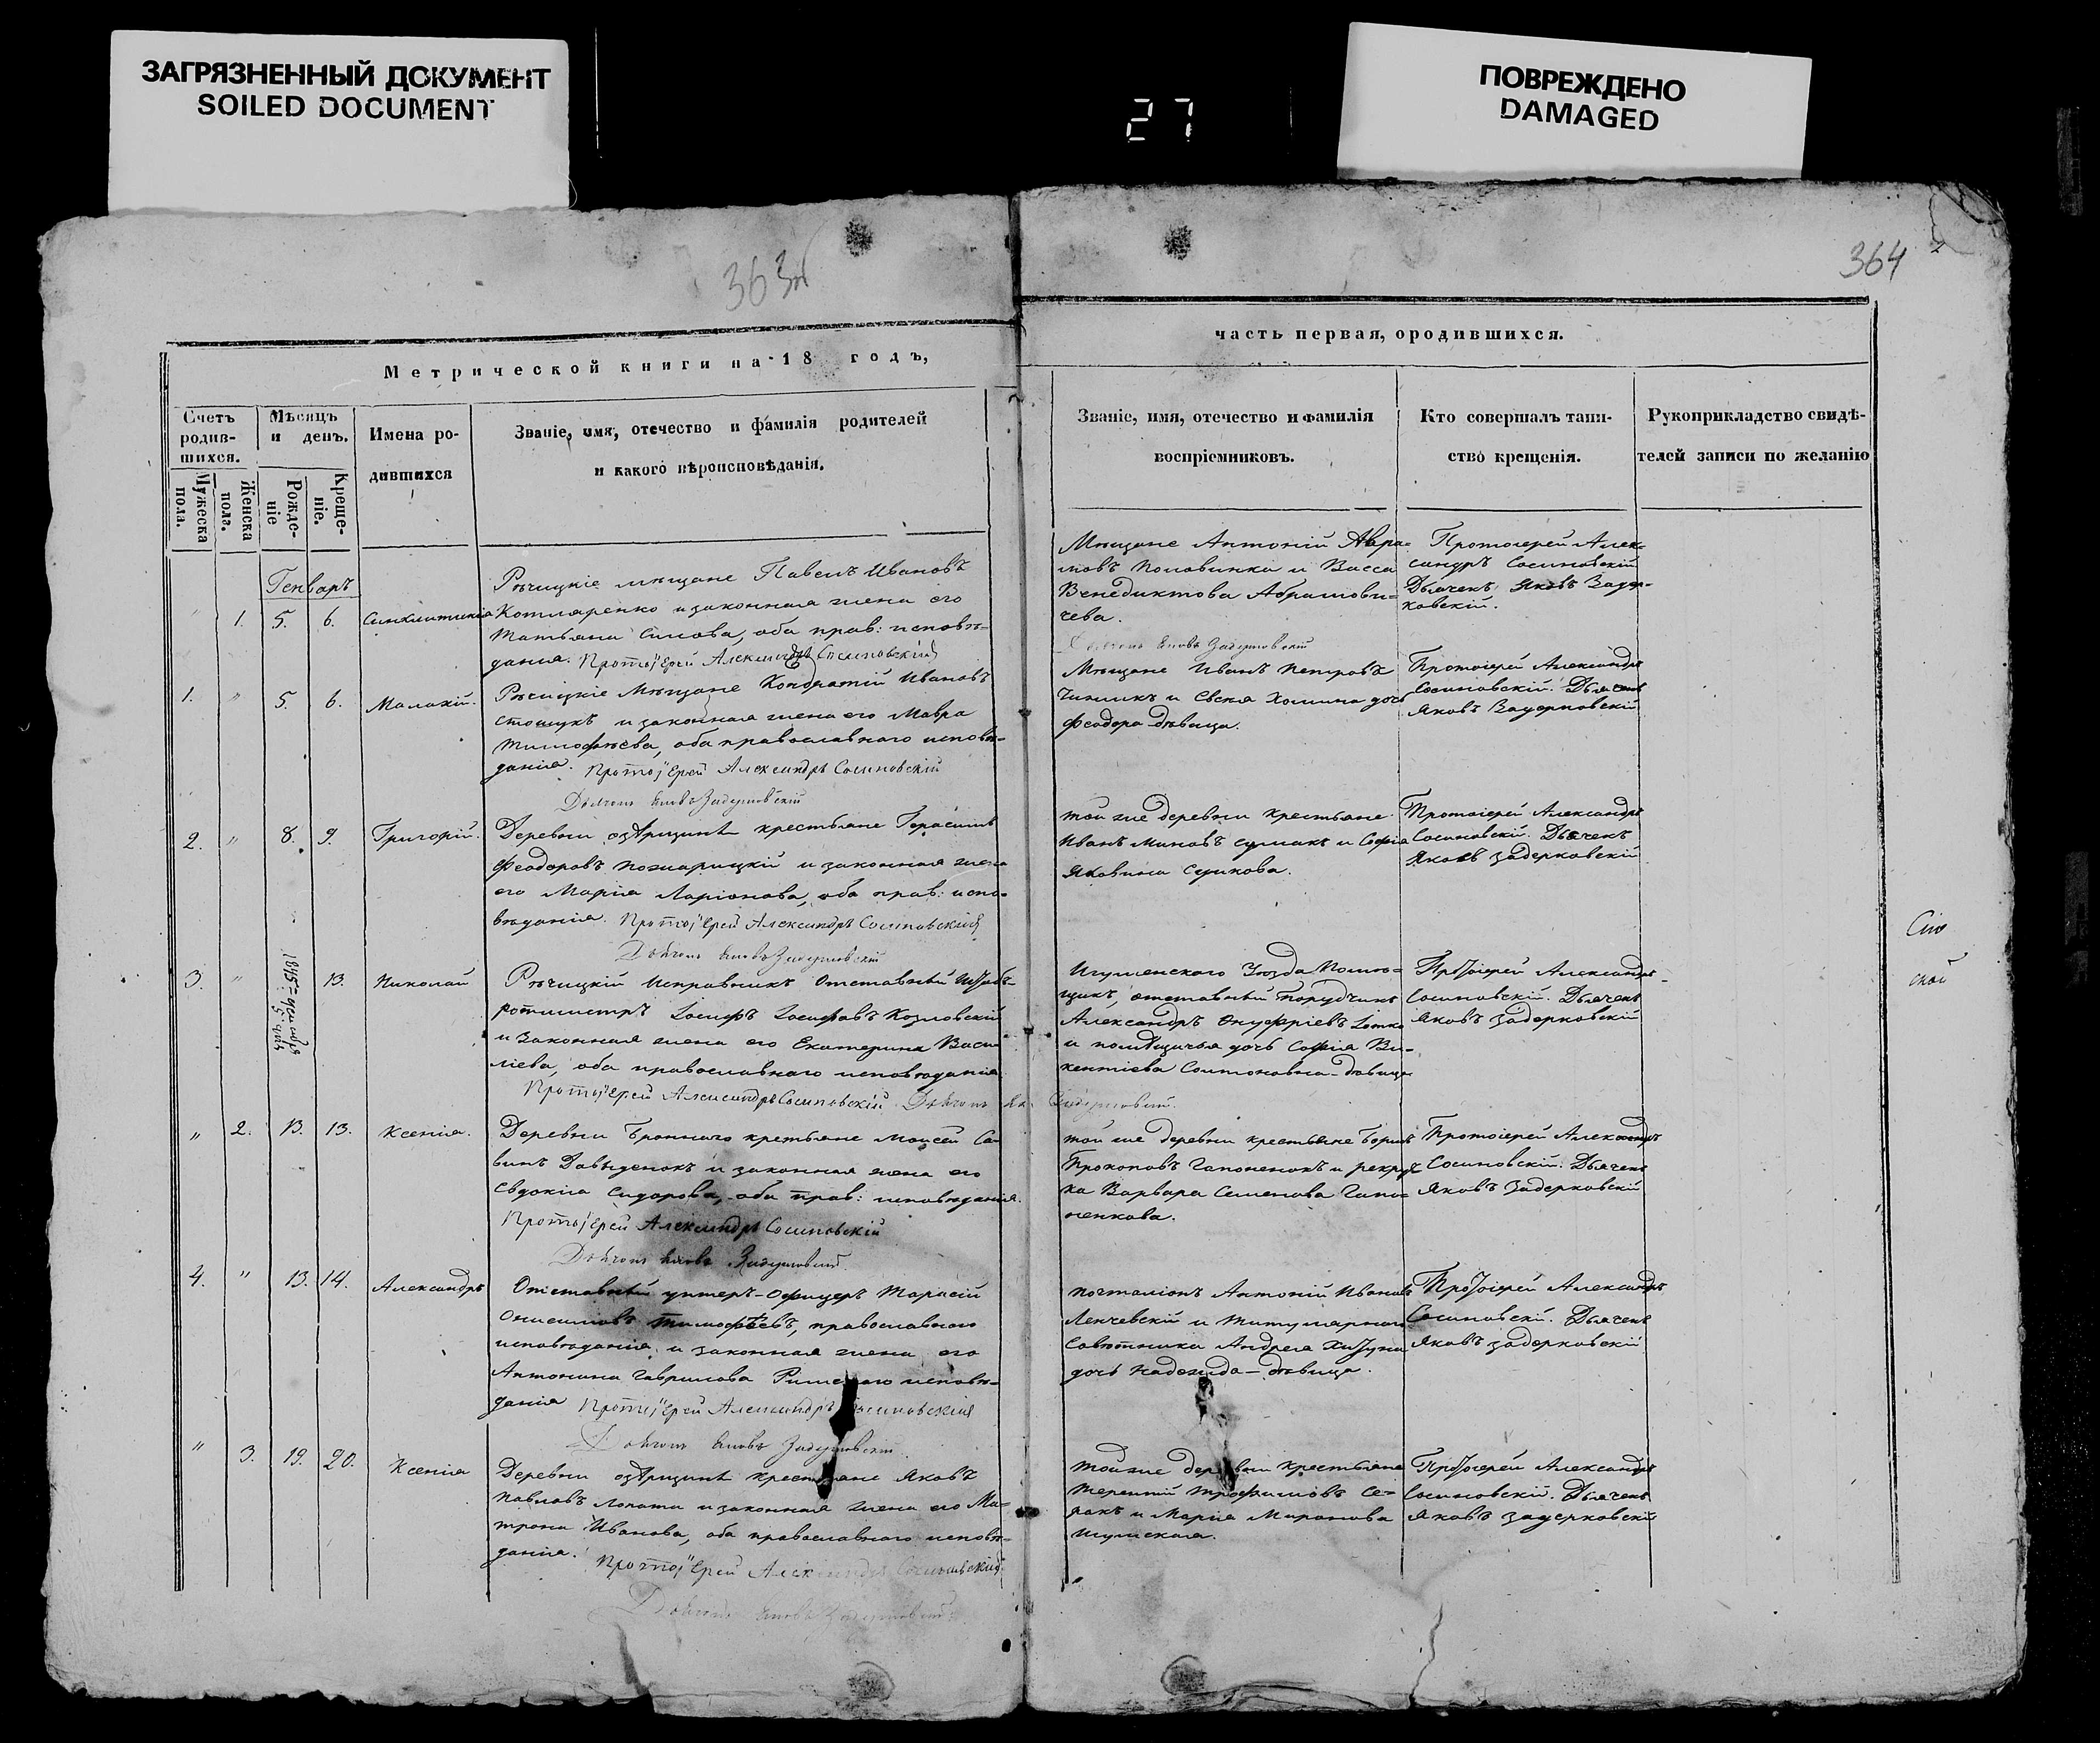 ЗАГРЯЗНЕННЫЙ ДОКУМЕНТ
SOILED DOCUMENT
27
ПОВРЕЖДЕНО
DAMAGED
363
364
Метрической книги на 18 годъ,
часть первая, ородившихся.
Счетъ родив-шихся.
Мужеска пола.
Женска пола.
Мѣсяцъ и день.
Рожде-ніе
Креще-ніе.
Имена ро-дившихся
Званіе, имя, отечество и фамилія родителей
и какого вѣроисповѣданія.
Званіе, имя, отечество и фамилія
воспріемниковъ.
Кто совершалъ таин-
ство крещенія.
Рукоприкладство свидѣ-
телей записи по желанію
Генваръ
" 1. 5. 6. Синклитикія
Рѣчицкіе мѣщане Павелъ Ивановъ
Котляренко и законная жена его
Татьяна Силова, оба прав: исповѣ-
данія. Протоіерей Александръ Сосиновскій
Мѣщане Антоній Авра-
мовъ Половинка и Васса
Венедиктова Абрамови-
чева.
Протоіерей Алек-
сандръ Сосиновскій
Дьячекъ Яковъ Задер-
ковскій.
1. " 5. 6. Малахій.
Рѣчицкіе Мѣщане Кондратій Ивановъ
и законная жена его Мавра
Тимофѣева, оба православного исповѣ-
данія. Протоіерей Александръ Сосиновскій
Мѣщане Иванъ Петровъ
и Хомина дочь
Феодора дѣвица.
Протоіерей Александръ
Сосиновскій. Дьячекъ
Яковъ Задерковскій
2. " 8. 9. Григорій.
Деревни Озѣрщинъ крестьяне Герасимъ
Феодоровъ Пожарицкій и законная жена
его Марія Ларіонова, оба прав: испо-
вѣданія. Протоіерей Александръ Сосиновскій
той же деревни крестьяне
Иванъ Миновъ и Софія
Яковина Сушкова.
Протоіерей Александръ
Сосиновскій. Дьячекъ
Яковъ Задерковскій
3. " 13. Николай
1845
Рѣчицкій Исправникъ Отставный Штабъ-
ротмистръ Іосифъ Іосифовъ Козловскій
и законная жена его Екатерина Васи-
ліева, оба православнаго исповѣданія.
Протоіерей Александръ Сосиновскій
Игуменского Уѣзда Помѣ-
щикъ, отставный Порутчикъ
Александръ Онуфріевъ
и помѣщичья дочь Софія Ви-
кентіева дѣвица
Протоіерей Александръ
Сосиновскій. Дьячекъ
Яковъ Задерковскій
" 2. 13. 13. Ксенія.
Деревни Броннаго крестьяне Моисей Са-
винъ Давыденокъ и законная жена его
Евдокія Сидорова, оба прав: исповѣданія.
Протоіерей Александръ Сосиновскій
той же деревни крестьяне Борисъ
Прокоповъ Гапоненокъ и рекрут-
ка Варвара Семенова Гапо-
ненкова.
Протоіерей Александръ
Сосиновскій. Дьячекъ
Яковъ Задерковскій
4. " 13. 14. Александръ
Отставный унтеръ-Офицеръ Тарасій
Онисимовъ Тимофѣевъ, православного
исповѣданія, и законная жена его
Антонина Гаврилова Римского исповѣ-
данія Протоіерей Александръ Сосиновскій
почталіонъ Антоній Ивановъ
Ленчевскій и титулярного
Совѣтника Андрея
дочь Надежда - дѣвица.
Протоіерей Александръ
Сосиновскій. Дьячекъ
Яковъ Задерковскій
" 3. 19. 20. Ксенія
Деревни Озѣрщинъ крестьяне Яковъ
Павловъ Лопата и законная жена его Ма-
трона Иванова, оба православнаго исповѣ-
данія. Протоіерей Александръ Сосиновскій
той же деревни крестьяне
Терентій Трофимовъ
и Марія Миронова
Протоіерей Александръ
Сосиновскій. Дьячекъ
Яковъ Задерковскій